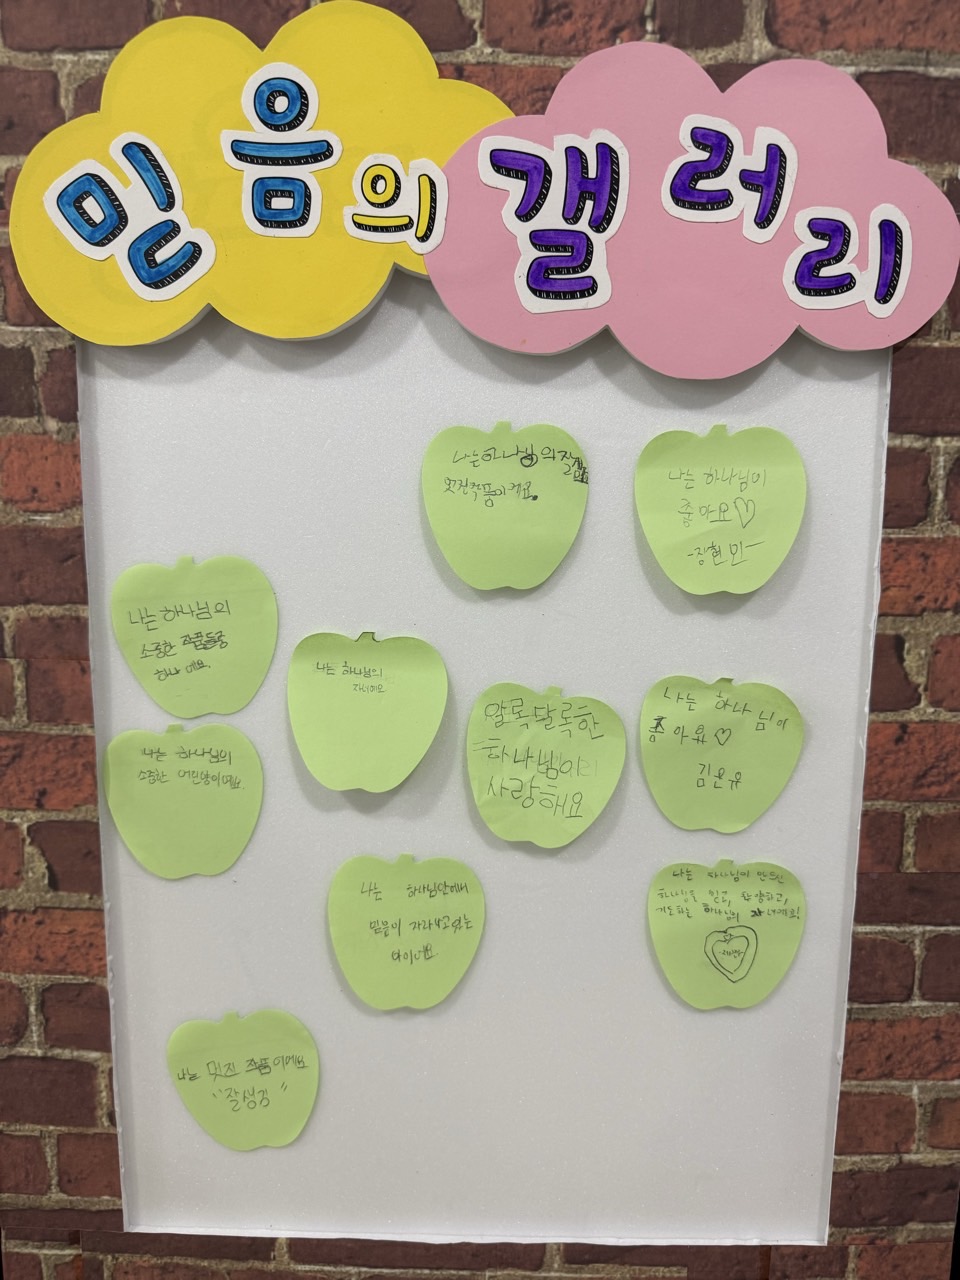 믿음의 갤러리
나는 하나님의
멋진작품이예요.
나는 하나님이
좋아요♡
-장현민-
나는 하나님의
소중한 작품들중
하나에요.
나는 하나님의
자녀예요
알록달록한
하나님이
사랑해요
나는 하나님이
좋아요♡
김은유
나는 하나님의
소중한 어린양이예요.
나는 하나님안에서
믿음이 자라나고있는
아이예요.
나는 하나님이 만드신
하나님을 믿고, 찬양하고,
기도하는 하나님의 자녀예요!
나는 멋진 작품이에요
"잘생김"